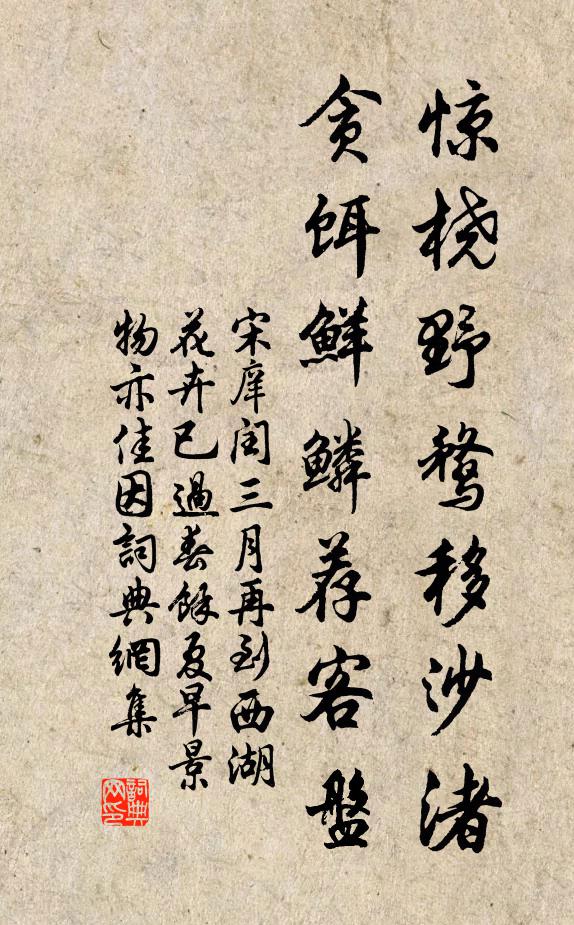 惊桡野鹜移沙渚
贪饵鲜鳞荐客盤
宋庠闰三月再到西湖
花卉已過春餘夏早景
物亦佳因詞典網集
詞典
网印